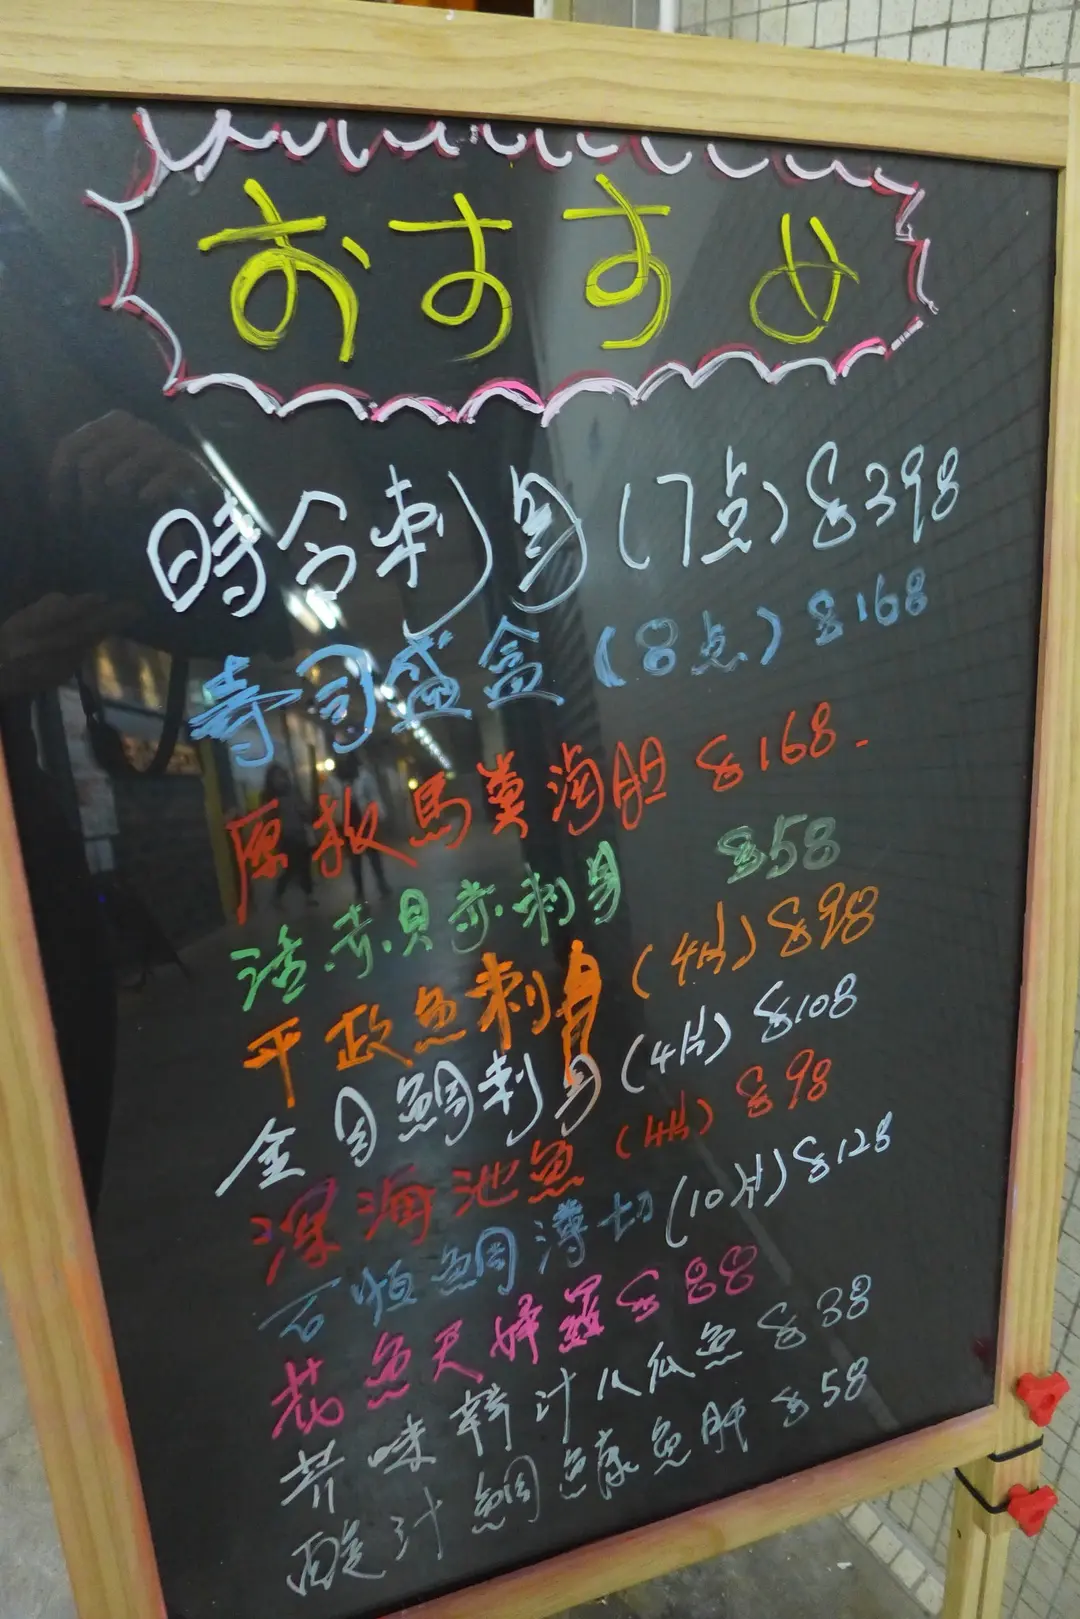 おすすめ
時令刺身(7点)$398
寿司盛盒(8点)$168
原板馬糞海胆 $168-
活赤貝赤刺身 $58
平政魚刺身(4片)$98
金目鯛刺身(4片)$108
深海池魚(4片)$98
石恒鯛薄切(10片)$128
花魚天婦羅 $88
芥味辣汁八瓜魚 $38
酸汁鯛鱇魚肝 $58